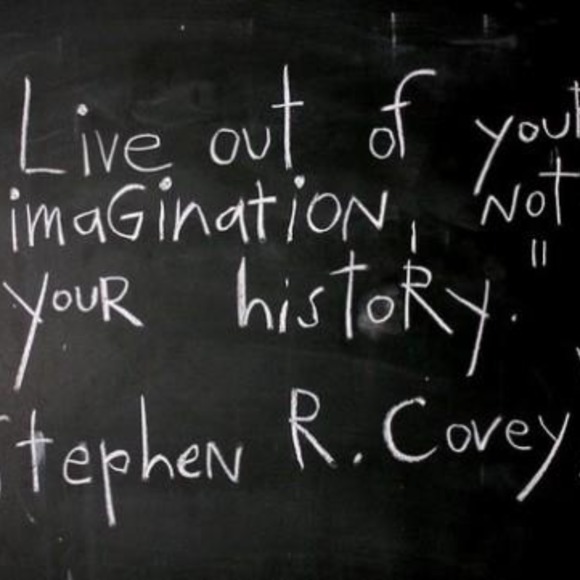 Live out of your
imaGination, Not
youR histoRy."
Stephen R. Covey